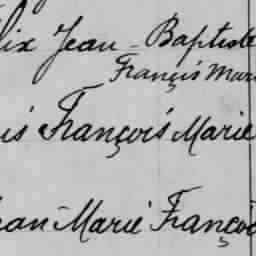 lix Jean-Baptiste
François Mari
is François Marie
ean-Marie Françoi